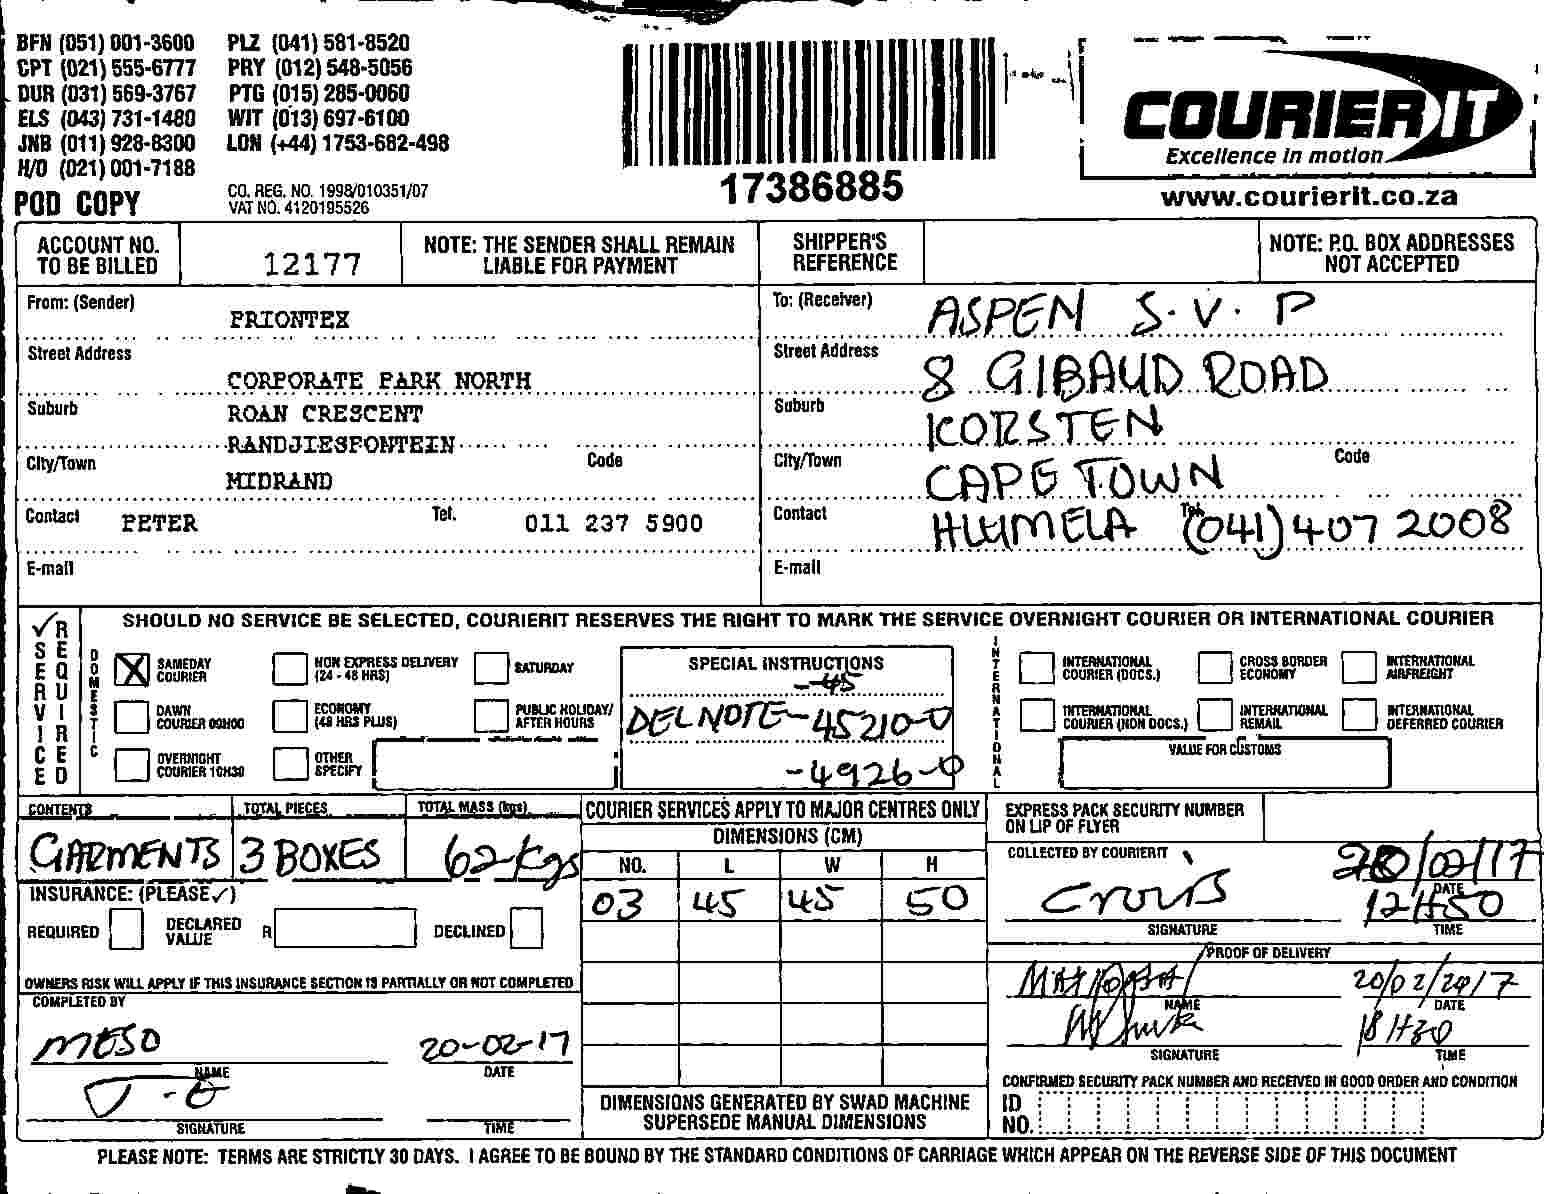 BFN (051) 001-3600 PLZ (041) 581-8520
CPT (021) 555-6777 PRY (012) 548-5056
DUR (031) 569-3767 PTG (015) 285-0060
ELS (043) 731-1480 WIT (013) 697-6100
JNB (011) 928-8300 LON (+44) 1753-682-498
H/O (021) 001-7188
POD COPY
CO. REG. NO. 1998/010351/07
VAT NO. 4120195526
17386885
COURIER IT
Excellence in motion
www.courierit.co.za
ACCOUNT NO. TO BE BILLED 12177
NOTE: THE SENDER SHALL REMAIN LIABLE FOR PAYMENT
SHIPPER'S REFERENCE
NOTE: P.O. BOX ADDRESSES NOT ACCEPTED
From: (Sender) PRIONTEX
Street Address CORPORATE PARK NORTH
Suburb ROAN CRESCENT
RANDJIESFONTEIN
City/Town MIDRAND Code
Contact PETER Tel. 011 237 5900
E-mail
To: (Receiver) ASPEN S.V.P
Street Address 8 GIBAUD ROAD
Suburb KORSTEN
City/Town CAPE TOWN Code
Contact HLUMELA Tel. (041) 407 2008
E-mail
✓ SERVICE REQUIRED
SHOULD NO SERVICE BE SELECTED, COURIERIT RESERVES THE RIGHT TO MARK THE SERVICE OVERNIGHT COURIER OR INTERNATIONAL COURIER
DOMESTIC
X SAMEDAY COURIER
NON EXPRESS DELIVERY (24 - 48 HRS)
SATURDAY
DAWN COURIER 09H00
ECONOMY (48 HRS PLUS)
PUBLIC HOLIDAY/ AFTER HOURS
OVERNIGHT COURIER 10H30
OTHER SPECIFY
SPECIAL INSTRUCTIONS
-45
DEL NOTE-45210-0
-4926-0
INTERNATIONAL
INTERNATIONAL COURIER (DOCS.)
CROSS BORDER ECONOMY
INTERNATIONAL AIRFREIGHT
INTERNATIONAL COURIER (NON DOCS.)
INTERNATIONAL REMAIL
INTERNATIONAL DEFERRED COURIER
VALUE FOR CUSTOMS
CONTENTS TOTAL PIECES TOTAL MASS (kgs)
GARMENTS 3 BOXES 62kgs
INSURANCE: (PLEASE ✓)
REQUIRED DECLARED VALUE R DECLINED
OWNERS RISK WILL APPLY IF THIS INSURANCE SECTION IS PARTIALLY OR NOT COMPLETED
COMPLETED BY
MESO 20-02-17
NAME DATE
SIGNATURE TIME
COURIER SERVICES APPLY TO MAJOR CENTRES ONLY
DIMENSIONS (CM)
NO. L W H
03 45 45 50
DIMENSIONS GENERATED BY SWAD MACHINE
SUPERSEDE MANUAL DIMENSIONS
EXPRESS PACK SECURITY NUMBER ON LIP OF FLYER
COLLECTED BY COURIERIT
20/02/17
DATE
12H50
SIGNATURE TIME
PROOF OF DELIVERY
20/02/2017
NAME DATE
18H30
SIGNATURE TIME
CONFIRMED SECURITY PACK NUMBER AND RECEIVED IN GOOD ORDER AND CONDITION
ID NO.
PLEASE NOTE: TERMS ARE STRICTLY 30 DAYS. I AGREE TO BE BOUND BY THE STANDARD CONDITIONS OF CARRIAGE WHICH APPEAR ON THE REVERSE SIDE OF THIS DOCUMENT